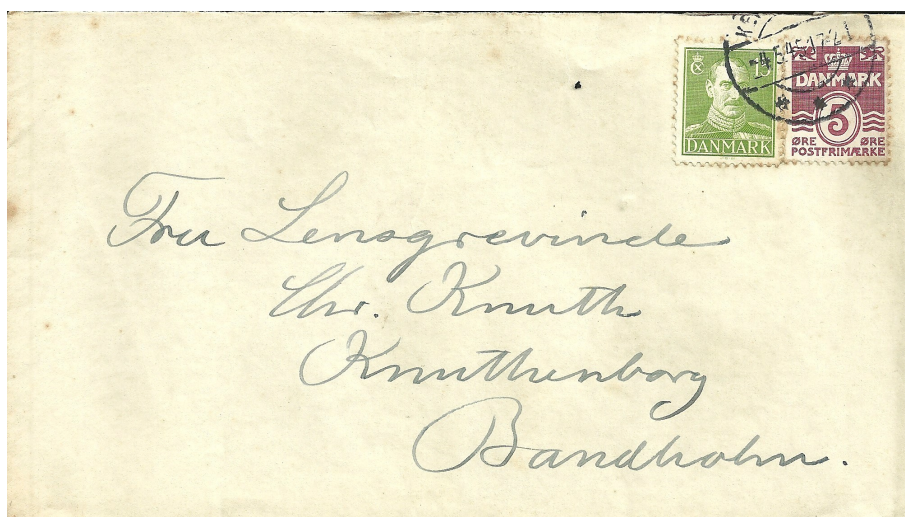 4.5.45.17-21
15
DANMARK
DANMARK
5
ØRE ØRE
POSTFRIMÆRKE
Fru Lensgrevinde
Chr. Knuth
Knuthenborg
Bandholm.